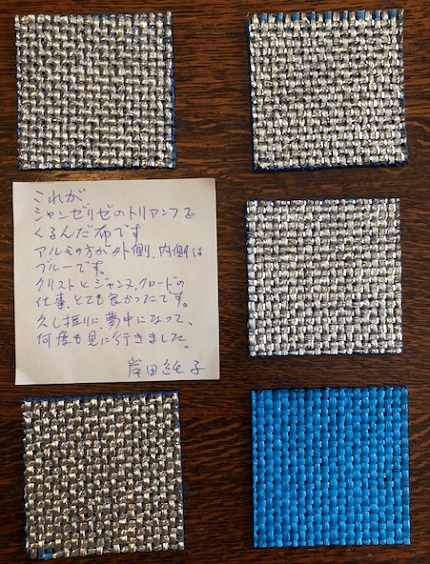 これが
シャンゼリゼのトリアンフを
くるんだ布です
アルミの方が外側、内側は
ブルーです。
クリストとジャンヌ、クロードの
仕事、とても良かったです。
久し振りに、夢中になって、
何度も見に行きました。
岸田純子